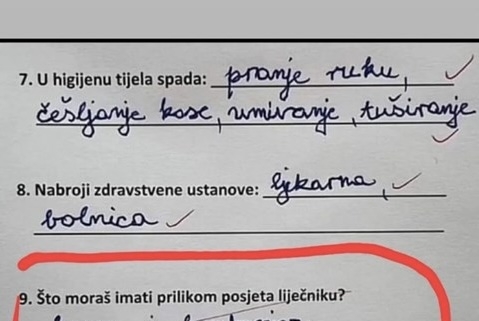 7. U higijenu tijela spada: pranje ruku,
češljanje kose, umivanje, tuširanje
8. Nabroji zdravstvene ustanove: ljekarna,
bolnica
9. Što moraš imati prilikom posjeta liječniku?